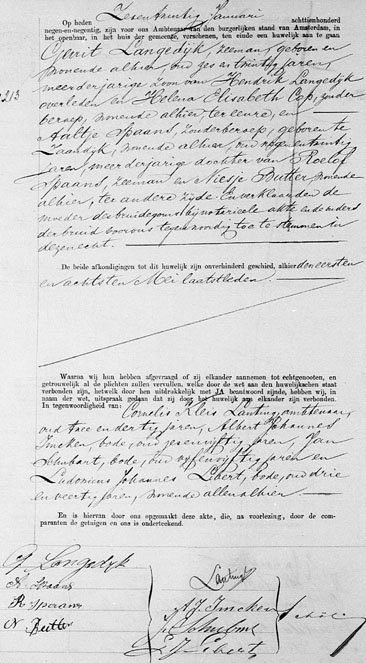 Op heden Zesentwintig Januari achttienhonderd
negen-en-negentig, zijn voor ons Ambtenaar van den burgerlijken stand van Amsterdam, in
het openbaar, in het huis der gemeente, verschenen, ten einde een huwelijk aan te gaan
Gerrit Langedijk, zeeman, geboren en
wonende alhier, oud zes en twintig jaren,
meerderjarige zoon van Hendrik Langedijk
overleden en Helena Elisabeth Cop, zonder
213
beroep, wonende alhier, ter eenre, en
Aaltje Spaans, zonder beroep, geboren te
Zaandijk, wonende alhier, oud negen twintig
jaren, meerderjarige dochter van Roelof
Spaans, zeeman en Niesje Butter, wonende
alhier, ter andere zijde. En verklaarden de
moeder des bruidegoms bij notarieele akte en de ouders
der bruid voorons tegenwoordig toe te stemmen in
deze echt.
De beide afkondigingen tot dit huwelijk zijn onverhinderd geschied, alhier den eersten
en achtsten Mei laatstleden.
Waarna wij hun hebben afgevraagd of zij elkander aannemen tot echtgenooten, en
getrouwelijk al de plichten zullen vervullen, welke door de wet aan den huwelijkschen staat
verbonden zijn, hetwelk door hen uitdrukkelijk met JA beantwoord zijnde, hebben wij, in
naam der wet, uitspraak gedaan dat zij door het huwelijk aan elkander zijn verbonden.
In tegenwoordigheid van: Cornelis Kleis Lanting, ambtenaar,
oud twee en dertig jaren, Albert Johannes
Imcken, bode, oud zesenvijftig jaren, Jan
bode, oud vijfenvijftig jaren en
Ludovicus Johannes Libert, bode, oud drie
en veertig jaren, wonende allen alhier.
En is hiervan door ons opgemaakt deze akte, die, na voorlezing, door de com-
paranten de getuigen en ons is onderteekend.
G Langedijk
A Spaans
R Spaans
N Butter
Lanting
A J Imcken
L J Libert